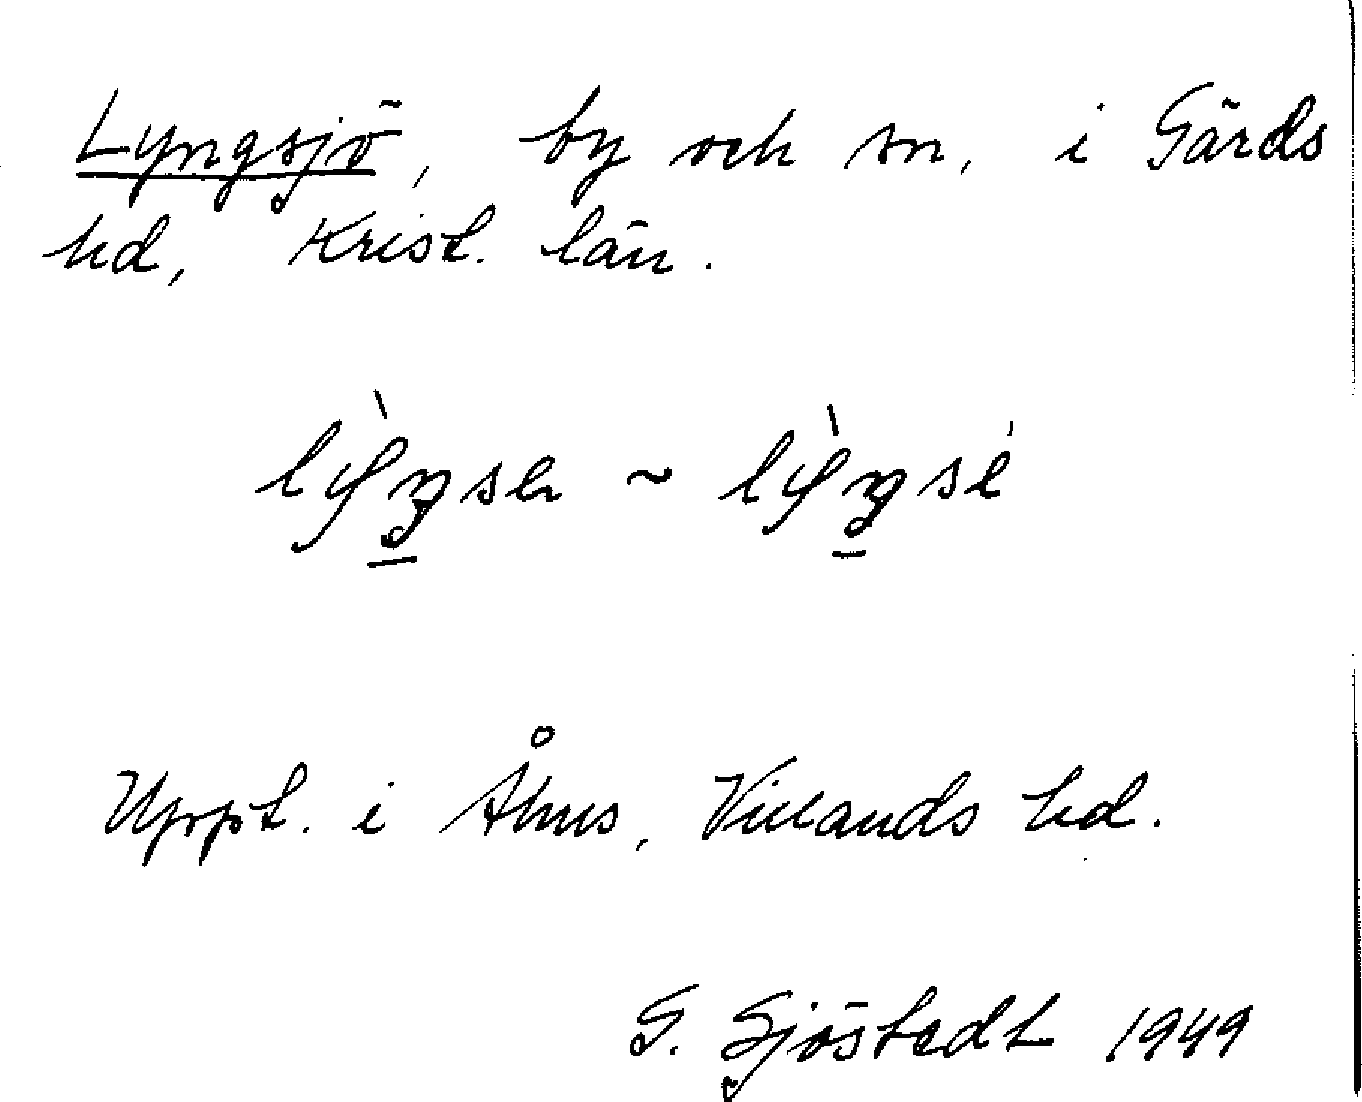 Lyngsjö, by och sn, i Gärds
hd, Krist. län.
~
Uppt. i Åhus, Villands hd.
G. Sjöstedt 1949